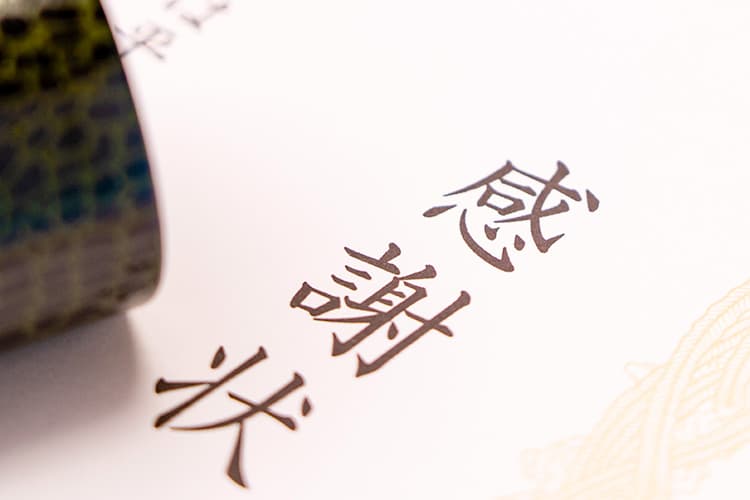 感謝状